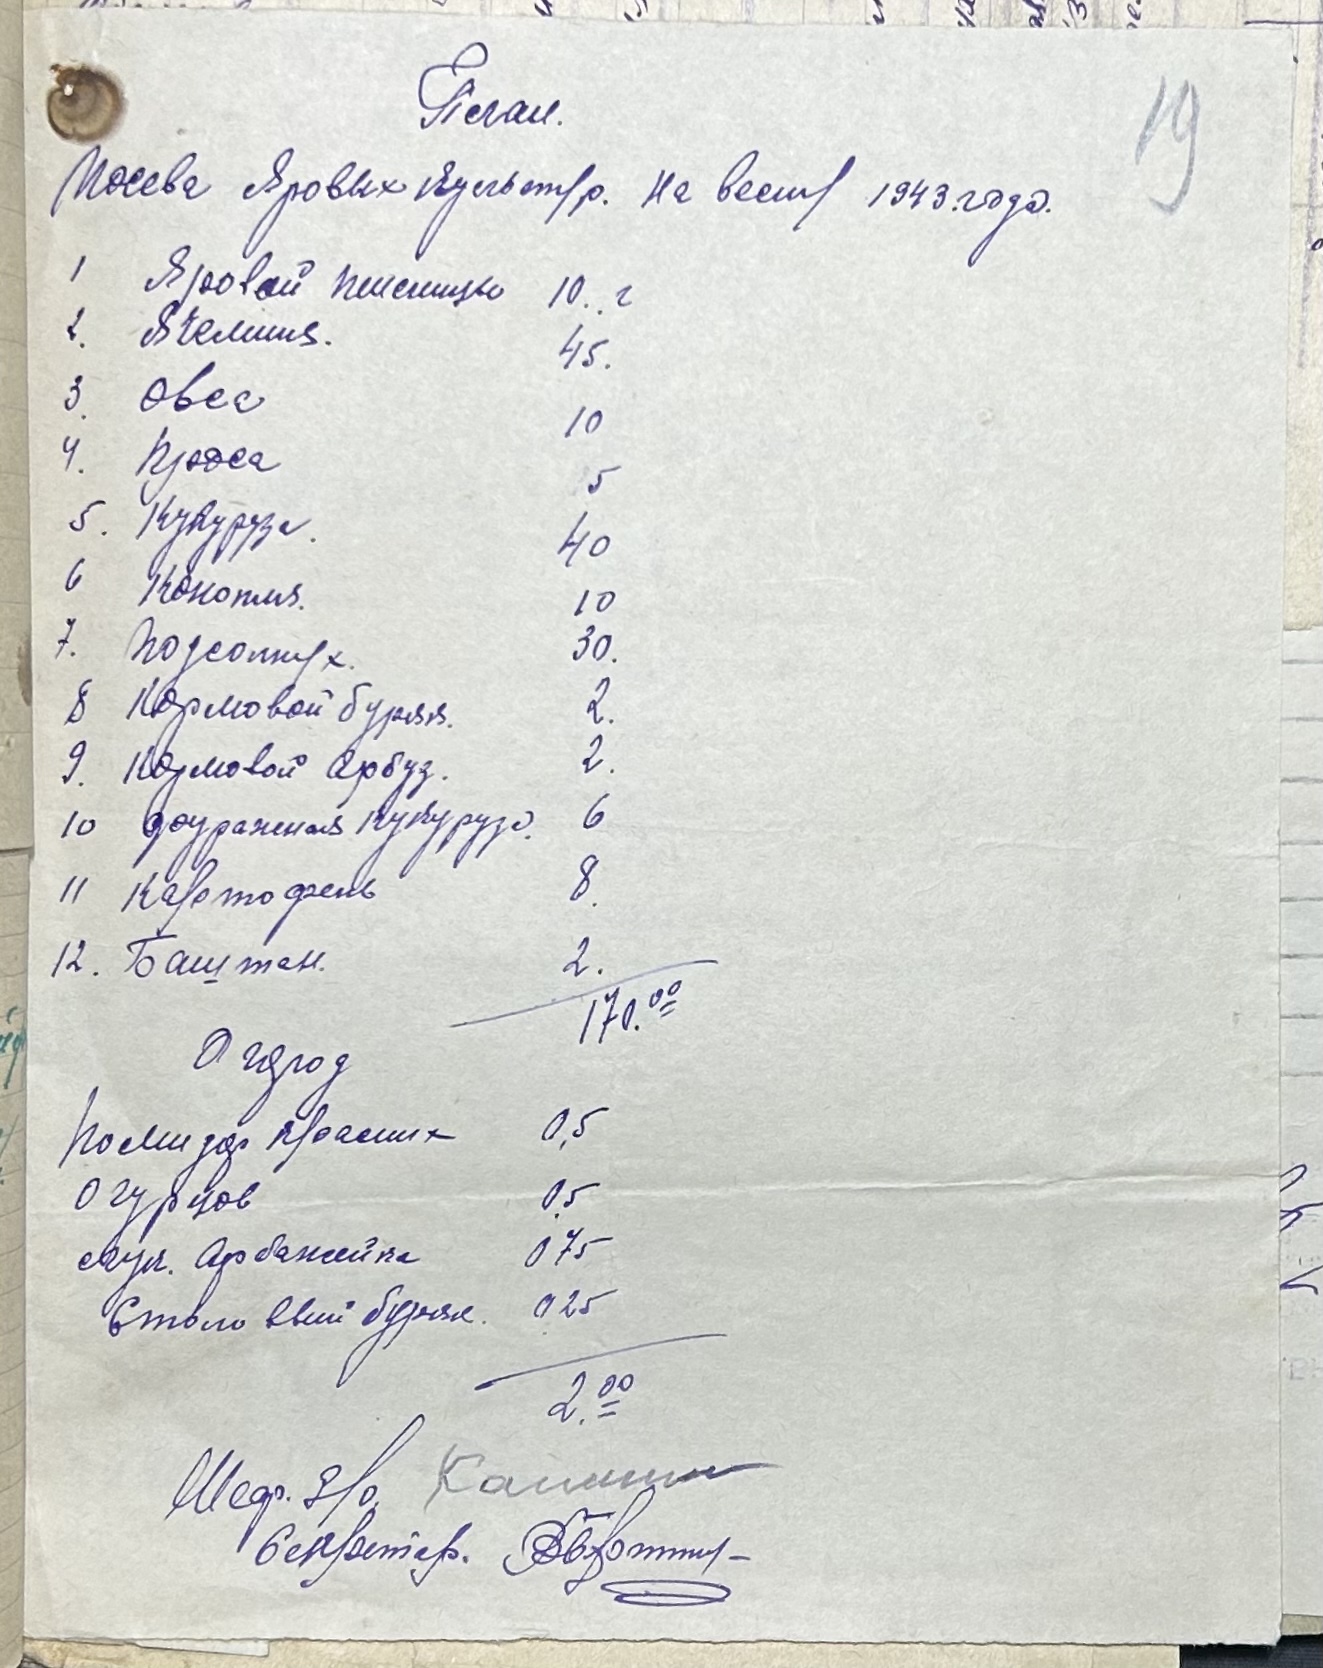 План.
19
Посева Яровых культур. на весну 1943 года.
1 Яровой пшеницы 10. г
2. Ячменя. 45.
3. Овса 10
4. Проса 5
5. Кукуруза. 40
6 Конопля. 10
7. Подсолнух. 30.
8 Кормовой буряк. 2.
9. Кормовой Арбуз. 2.
10 фуражная кукуруза. 6
11 Картофель 8.
12. Баштан. 2.
170.00
Огород
Помидор красних 0,5
Огурцов 0.5
Арбажейка 075
Столовый буряк. 0.25
2.00
Шеф.
Секретар.